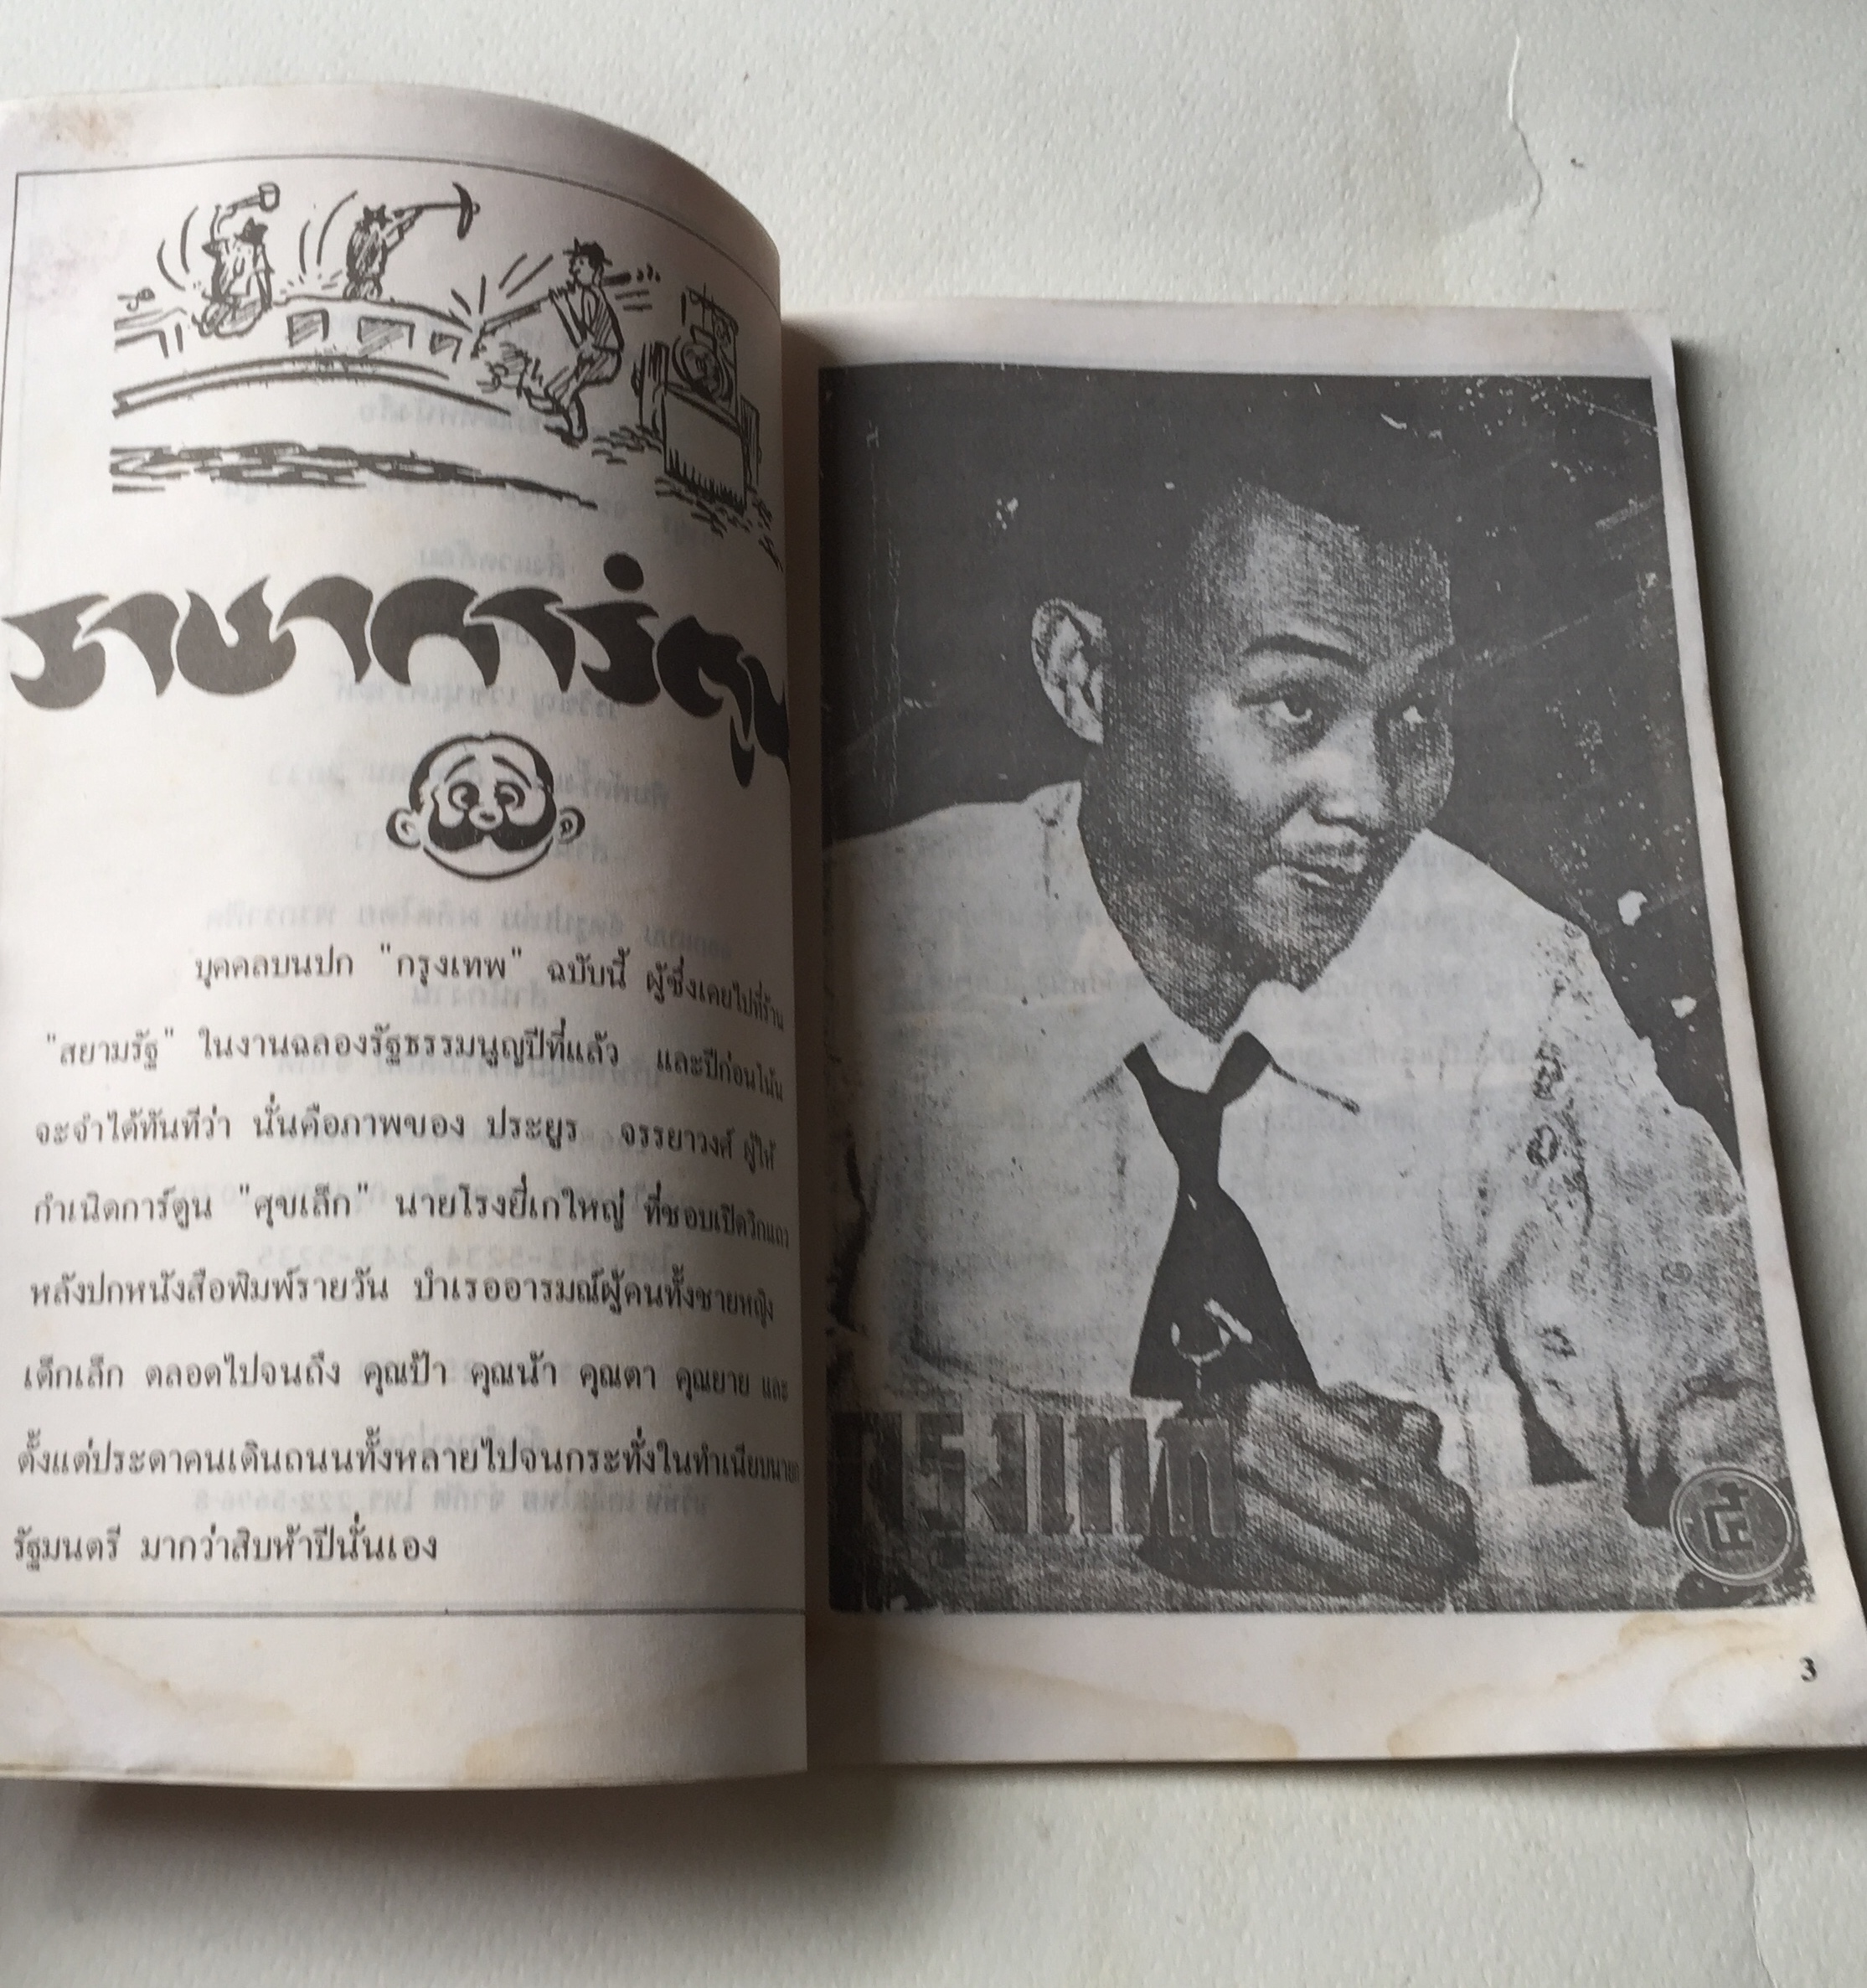 ราชาการ์ตูน
บุคคลบนปก "กรุงเทพ" ฉบับนี้ ผู้ซึ่งเคยไปที่ร้าน
"สยามรัฐ" ในงานฉลองรัฐธรรมนูญปีที่แล้ว และปีก่อนโน้น
จะจำได้ทันทีว่า นั่นคือภาพของ ประยูร จรรยาวงศ์ ผู้ให้
กำเนิดการ์ตูน "ศุขเล็ก" นายโรงยี่เกใหญ่ ที่ชอบเปิดวิกแถว
หลังปกหนังสือพิมพ์รายวัน บำเรออารมณ์ผู้คนทั้งชายหญิง
เด็กเล็ก ตลอดไปจนถึง คุณป้า คุณน้า คุณตา คุณยาย และ
ตั้งแต่ประดาคนเดินถนนทั้งหลายไปจนกระทั่งในทำเนียบนายก
รัฐมนตรี มากว่าสิบห้าปีนั่นเอง
กรุงเทพ
๔
3